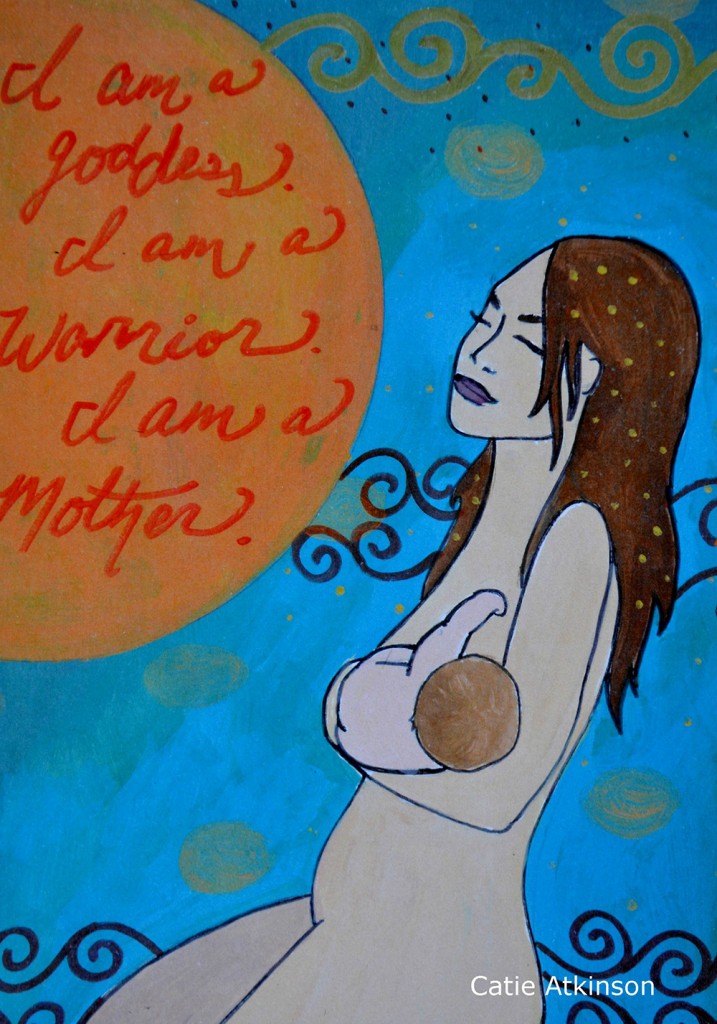 I am a
goddess.
I am a
Warrior.
I am a
Mother.
Catie Atkinson